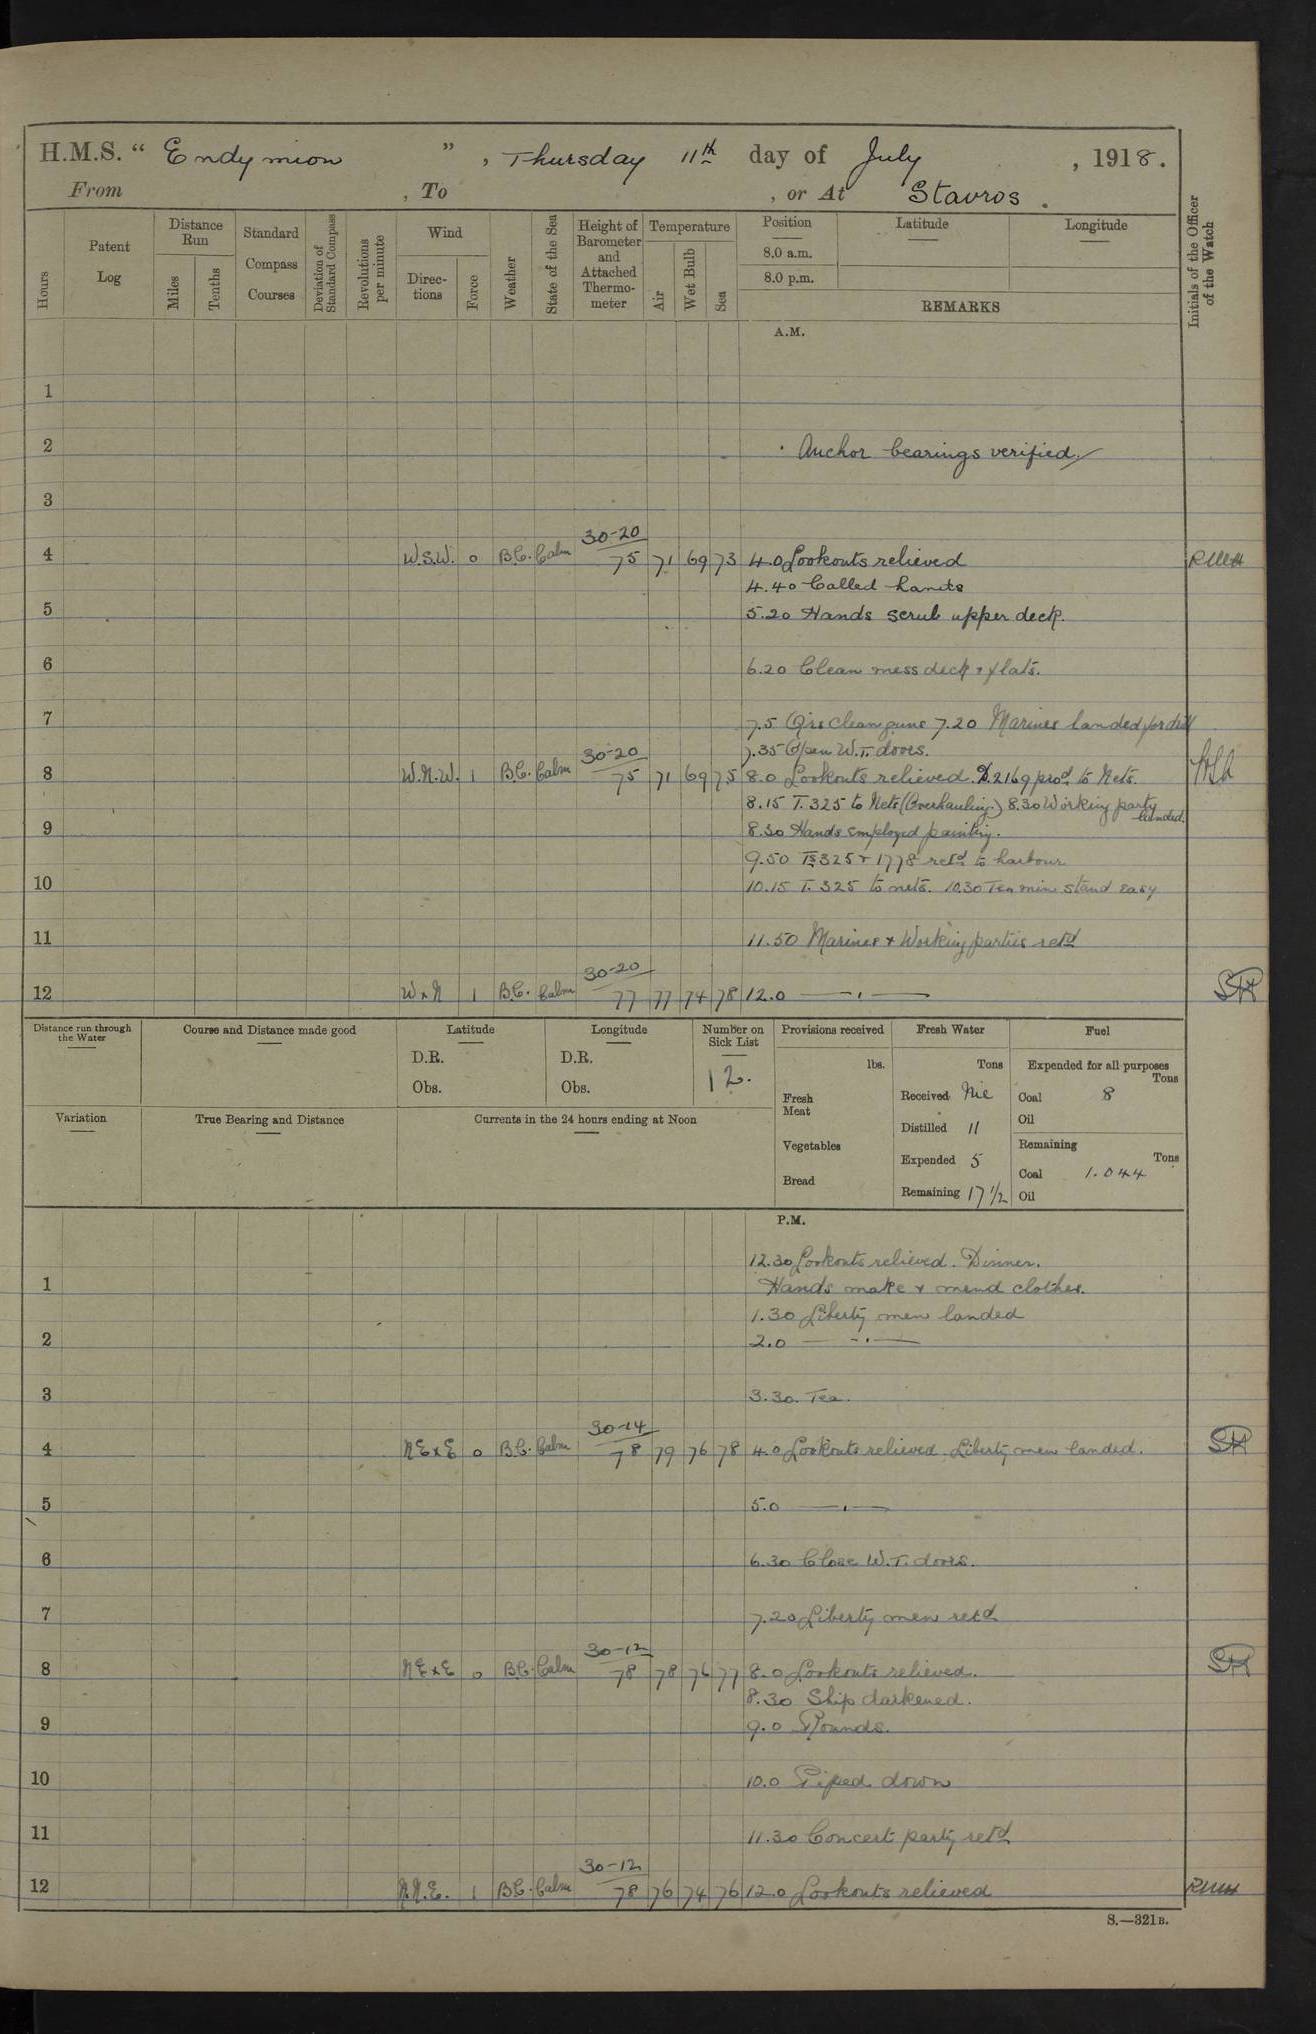 H.M.S. " Endymion ", Thursday 11th day of July , 1918.
From , To , or At Stavros.
Hours
Patent Log
Distance Run
Miles
Tenths
Standard Compass Courses
Deviation of Standard Compass
Revolutions per minute
Wind
Directions
Force
Weather
State of the Sea
Height of Barometer and Attached Thermometer
Temperature
Air
Wet Bulb
Sea
Position
8.0 a.m.
8.0 p.m.
Latitude
Longitude
REMARKS
Initials of the Officer of the Watch
A.M.
1
2 Anchor bearings verified
3
4 W.S.W. 0 B.C. Calm 30-20 75 71 69 73 4.0 Lookouts relieved
4.40 Called hands
5 5.20 Hands scrub upper deck.
6 6.20 Clean mess deck & flats.
7 7.5 Qrs clean guns 7.20 Marines landed for drill
7.35 Open W.T. doors.
8 W.N.W. 1 B.C. Calm 30-20 75 71 69 75 8.0 Lookouts relieved. D.2169 prod. to Nets.
8.15 T.325 to Nets (Overhauling.) 8.30 Working party landed.
9 8.30 Hands employed painting.
9.50 Ts 325 & 1778 retd to harbour
10 10.15 T. 325 to nets. 10.30 Ten min stand easy
11 11.50 Marines & Working parties retd
12 W x N 1 B.C. Calm 30-20 77 77 74 78 12.0 — " —
Distance run through the Water
Course and Distance made good
Latitude
D.R.
Obs.
Longitude
D.R.
Obs.
Number on Sick List
12.
Provisions received
lbs.
Fresh Meat
Vegetables
Bread
Fresh Water
Tons
Received Nil
Distilled 11
Expended 5
Remaining 17 1/2
Fuel
Expended for all purposes
Tons
Coal 8
Oil
Remaining
Tons
Coal 1.044
Oil
Variation
True Bearing and Distance
Currents in the 24 hours ending at Noon
P.M.
12.30 Lookouts relieved. Dinner.
1 Hands make & mend clothes.
1.30 Liberty men landed
2 2.0 — " —
3 3.30. Tea.
4 NE x E 0 B.C. Calm 30-14 78 79 76 78 4.0 Lookouts relieved. Liberty men landed.
5 5.0 — " —
6 6.30 Close W.T. doors.
7 7.20 Liberty men retd
8 NE x E 0 B.C. Calm 30-12 78 78 76 77 8.0 Lookouts relieved.
8.30 Ship darkened.
9 9.0 Rounds.
10 10.0 Piped down
11 11.30 Concert party retd
12 N.N.E. 1 B.C. Calm 30-12 78 76 74 76 12.0 Lookouts relieved
S.—321B.